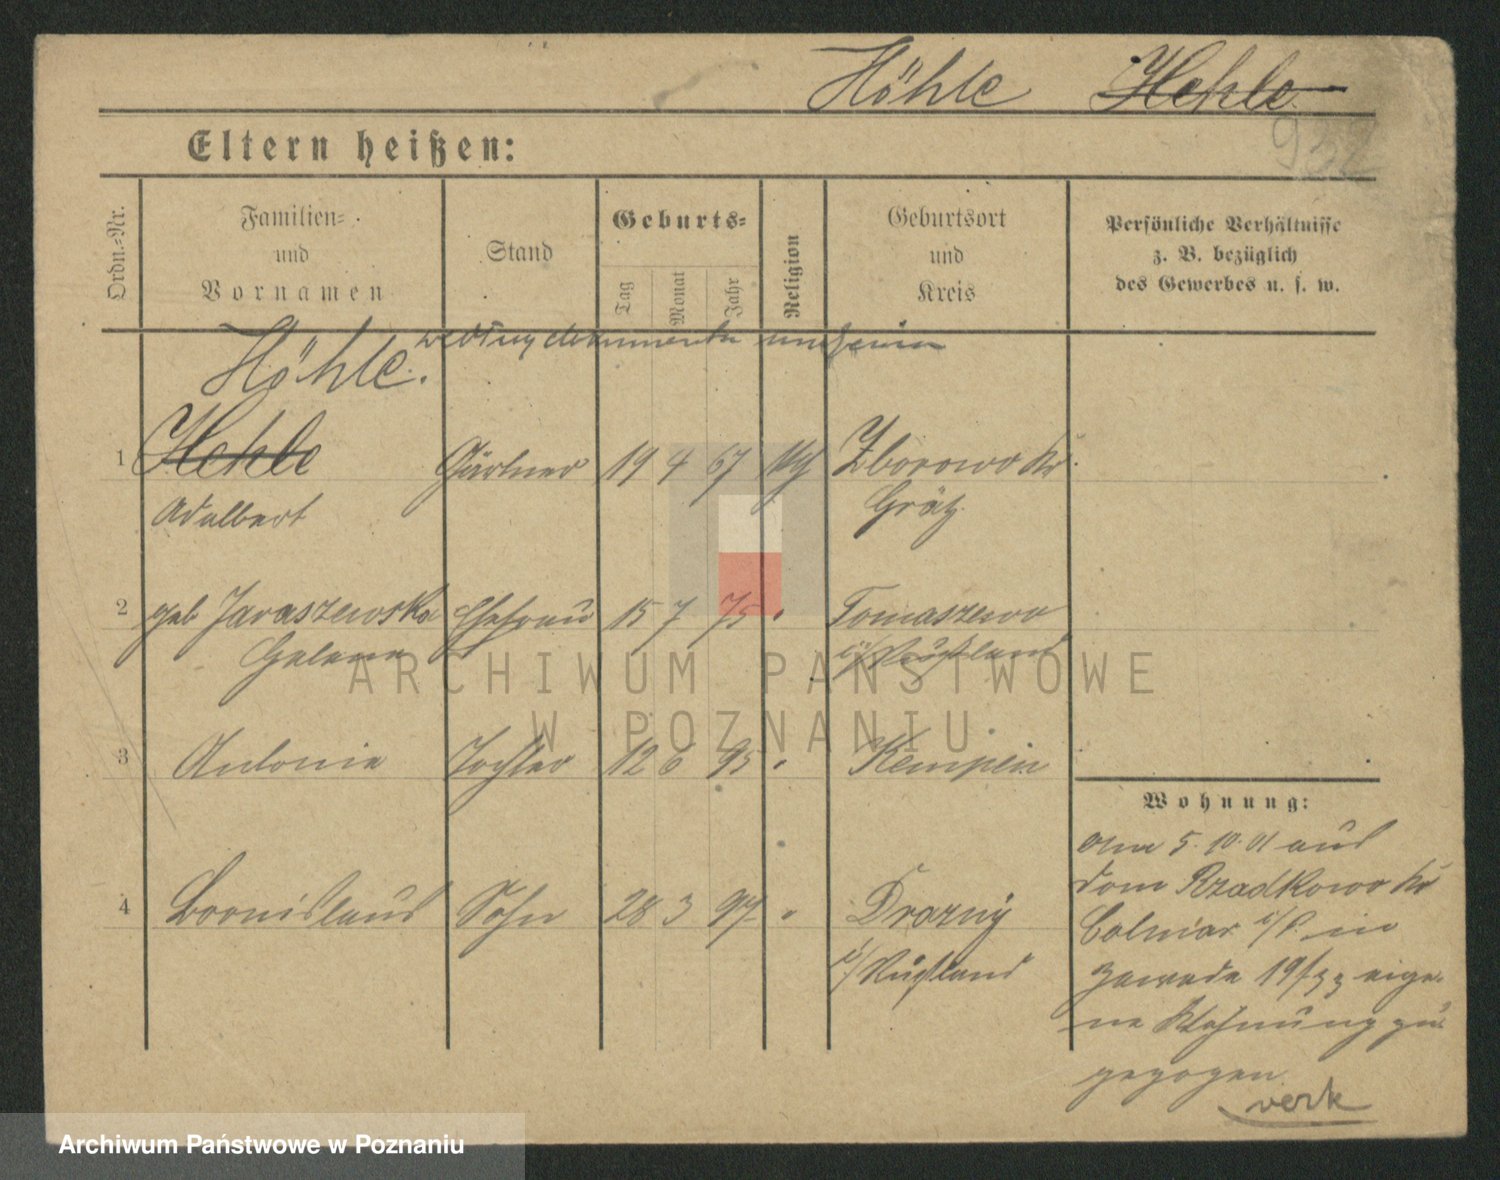 Höhle Hehle
932
Eltern heißen:
Ordn.=Nr.
Familien=
und
Vornamen
Stand
Geburts=
Tag
Monat
Jahr
Religion
Geburtsort
und
Kreis
Persönliche Verhältnisse
z. B. bezüglich
des Gewerbes u. s. w.
Höhle.
1 Hehle Gärtner 19 4 67 Zborowo Kr.
Adalbert Grätz
2 geb Jaraszewska Ehefrau 15 7 75 " Tomaszewo
Helena i/Rußland
3 Antonie Tochter 12 6 95 " Kempen
4 Bronislaus Sohn 28 3 97 " Drozny
i/Rußland
Wohnung:
Am 5.10.01 aus
Dom Rzadkowo Kr
Colmar i/P. in
Zawade 19/33 eige=
ne Wohnung zu=
gezogen
verk
ARCHIWUM PAŃSTWOWE
W POZNANIU
Archiwum Państwowe w Poznaniu